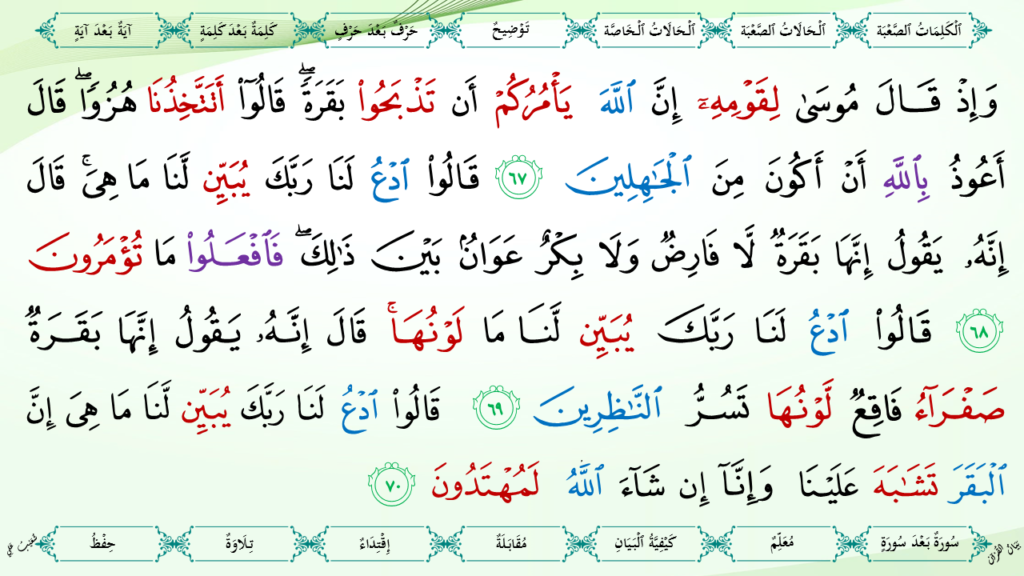 اَلْكَلِمَاتُ الصَّعْبَة
اَلْحَالَاتُ الصَّعْبَة
اَلْحَالَاتُ الْخَاصَّة
تَوْضِيحٌ
حَرْفٌ بَعْدَ حَرْفٍ
كَلِمَةٌ بَعْدَ كَلِمَةٍ
آيَةٌ بَعْدَ آيَةٍ
وَإِذۡ قَـالَ مُوسَىٰ لِقَوۡمِهِۦٓ إِنَّ ٱللَّهَ يَأۡمُرُكُمۡ أَن تَذۡبَحُوا۟ بَقَرَةࣰۖ قَالُوٓا۟ أَتَتَّخِذُنَا هُزُوࣰاۖ قَالَ
أَعُوذُ بِٱللَّهِ أَنۡ أَكُونَ مِنَ ٱلۡجَـٰهِلِينَ ٦٧ قَالُوا۟ ٱدۡعُ لَنَا رَبَّكَ يُبَيِّن لَّنَا مَا هِیَۚ قَالَ
إِنَّهُۥ يَقُولُ إِنَّهَا بَقَرَةࣱ لَّا فَارِضࣱ وَلَا بِكۡرٌ عَوَانُۢ بَيۡنَ ذَٰلِكَۖ فَٱفۡعَلُوا۟ مَا تُؤۡمَرُونَ
٦٨ قَالُوا۟ ٱدۡعُ لَنَا رَبَّكَ يُبَيِّن لَّنَا مَا لَوۡنُهَاۚ قَالَ إِنَّهُۥ يَقُولُ إِنَّهَا بَقَرَةࣱ
صَفۡرَآءُ فَاقِعࣱ لَّوۡنُهَا تَسُرُّ ٱلنَّـٰظِرِينَ ٦٩ قَالُوا۟ ٱدۡعُ لَنَا رَبَّكَ يُبَيِّن لَّنَا مَا هِیَ إِنَّ
ٱلۡبَقَرَ تَشَـٰبَهَ عَلَيۡنَا وَإِنَّآ إِن شَآءَ ٱللَّهُ لَمُهۡتَدُونَ ٧٠
سُورَةٌ بَعْدَ سُورَةٍ
مُعَلِّمٌ
كَيْفِيَّةُ الْبَيَانِ
مُقَابَلَةٌ
إِقْتِدَاءٌ
تِلَاوَةٌ
حِفْظٌ
بَيَانُ الْقُرْآن